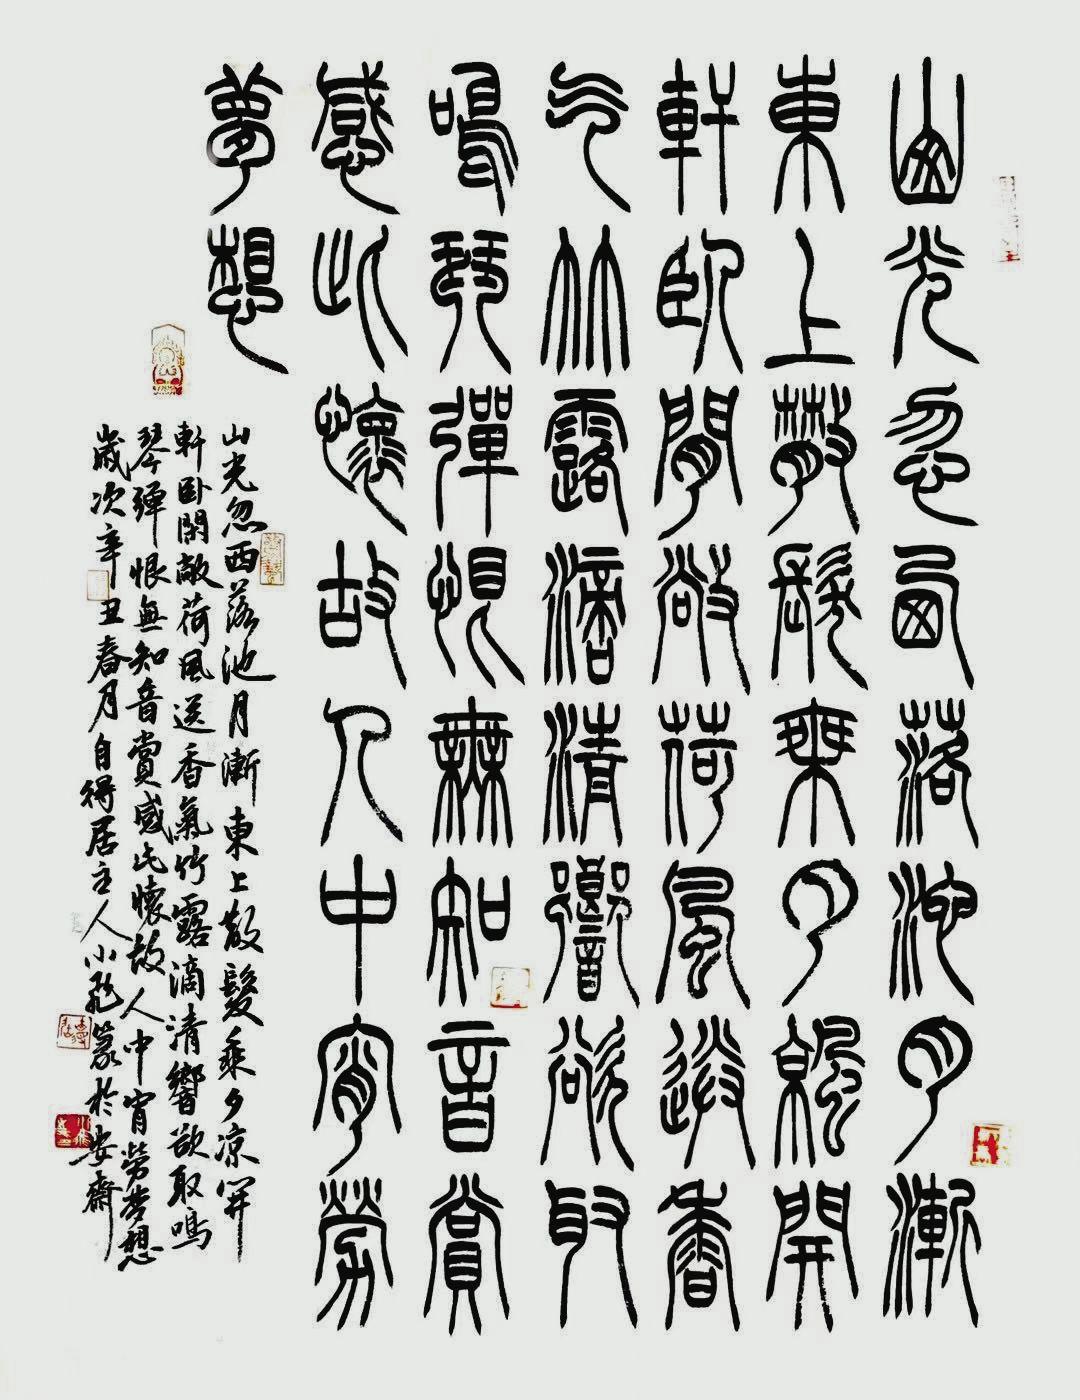 山光忽西落池月漸
東上散髮乘夕涼開
軒臥閒敞荷風送香
气竹露滴清響欲取
鳴琴彈恨無知音賞
感此懷故人中宵勞
夢想
山光忽西落池月漸東上散髮乘夕凉開
軒卧閑敞荷風送香氣竹露滴清響欲取鳴
琴彈恨無知音賞感此懷故人中宵勞夢想
歲次辛丑春月自得居主人小飛篆於安齋